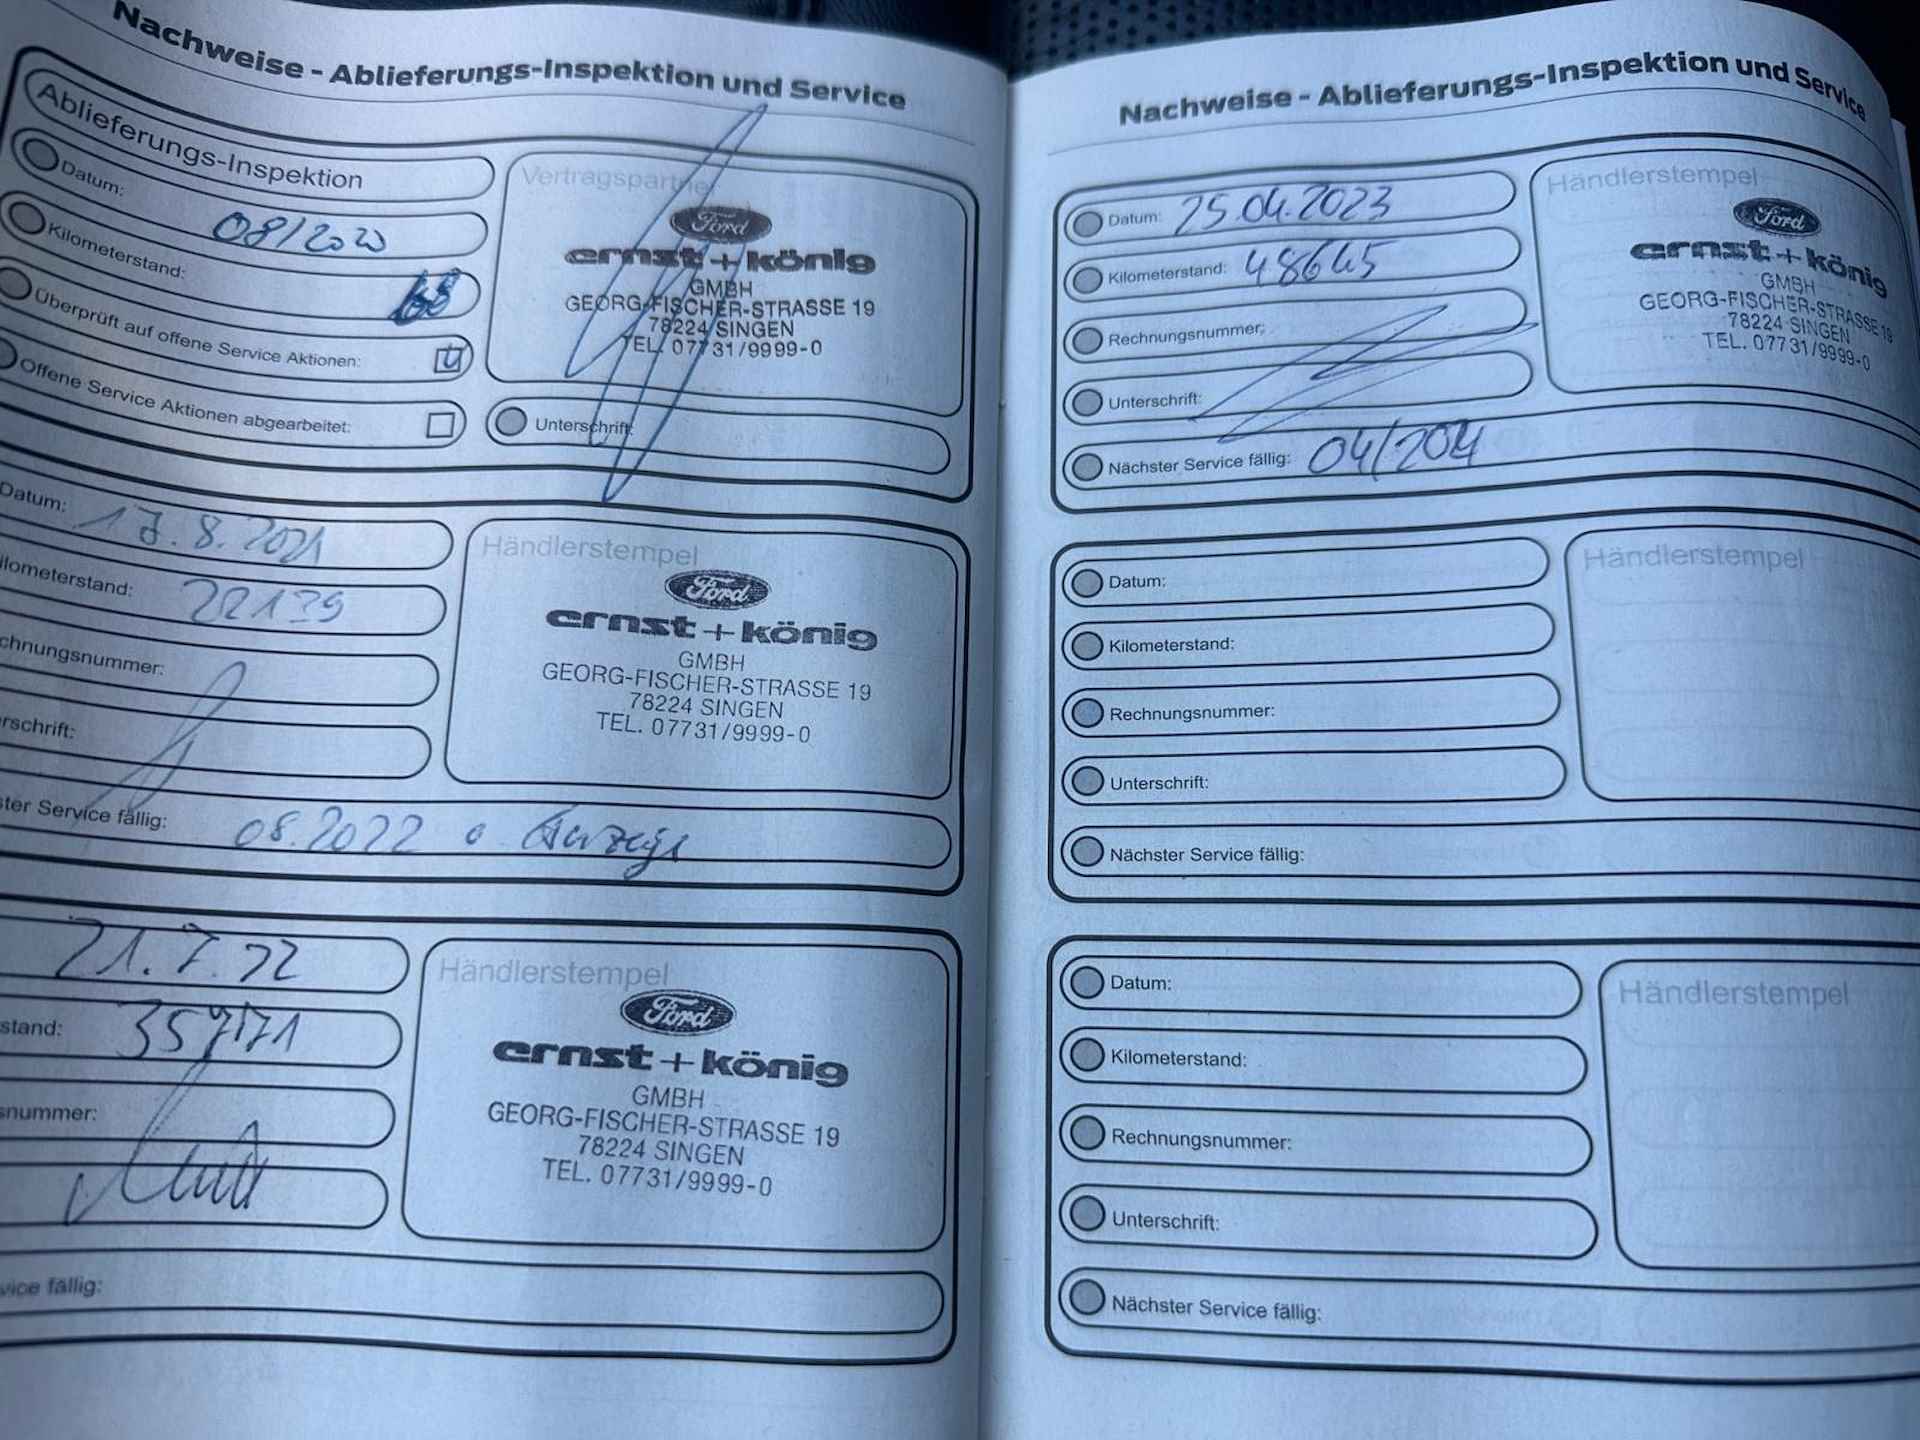 Nachweise - Ablieferungs-Inspektion und Service
Ablieferungs-Inspektion
Datum: 08/2020
Kilometerstand:
Überprüft auf offene Service Aktionen:
Offene Service Aktionen abgearbeitet:
Vertragspartner
Ford
ernst + könig
GMBH
GEORG-FISCHER-STRASSE 19
78224 SINGEN
TEL. 07731/9999-0
Unterschrift:
Datum: 17.8.2021
ilometerstand: 22139
chnungsnummer:
rschrift:
ster Service fällig: 08.2022 o Anzeige
Händlerstempel
Ford
ernst + könig
GMBH
GEORG-FISCHER-STRASSE 19
78224 SINGEN
TEL. 07731/9999-0
21.7.22
stand: 35771
snummer:
vice fällig:
Händlerstempel
Ford
ernst + könig
GMBH
GEORG-FISCHER-STRASSE 19
78224 SINGEN
TEL. 07731/9999-0
Nachweise - Ablieferungs-Inspektion und Service
Datum: 25.04.2023
Kilometerstand: 48645
Rechnungsnummer:
Unterschrift:
Nächster Service fällig: 04/204
Händlerstempel
Ford
ernst + könig
GMBH
GEORG-FISCHER-STRASSE 19
78224 SINGEN
TEL. 07731/9999-0
Datum:
Kilometerstand:
Rechnungsnummer:
Unterschrift:
Nächster Service fällig:
Händlerstempel
Datum:
Kilometerstand:
Rechnungsnummer:
Unterschrift:
Nächster Service fällig:
Händlerstempel